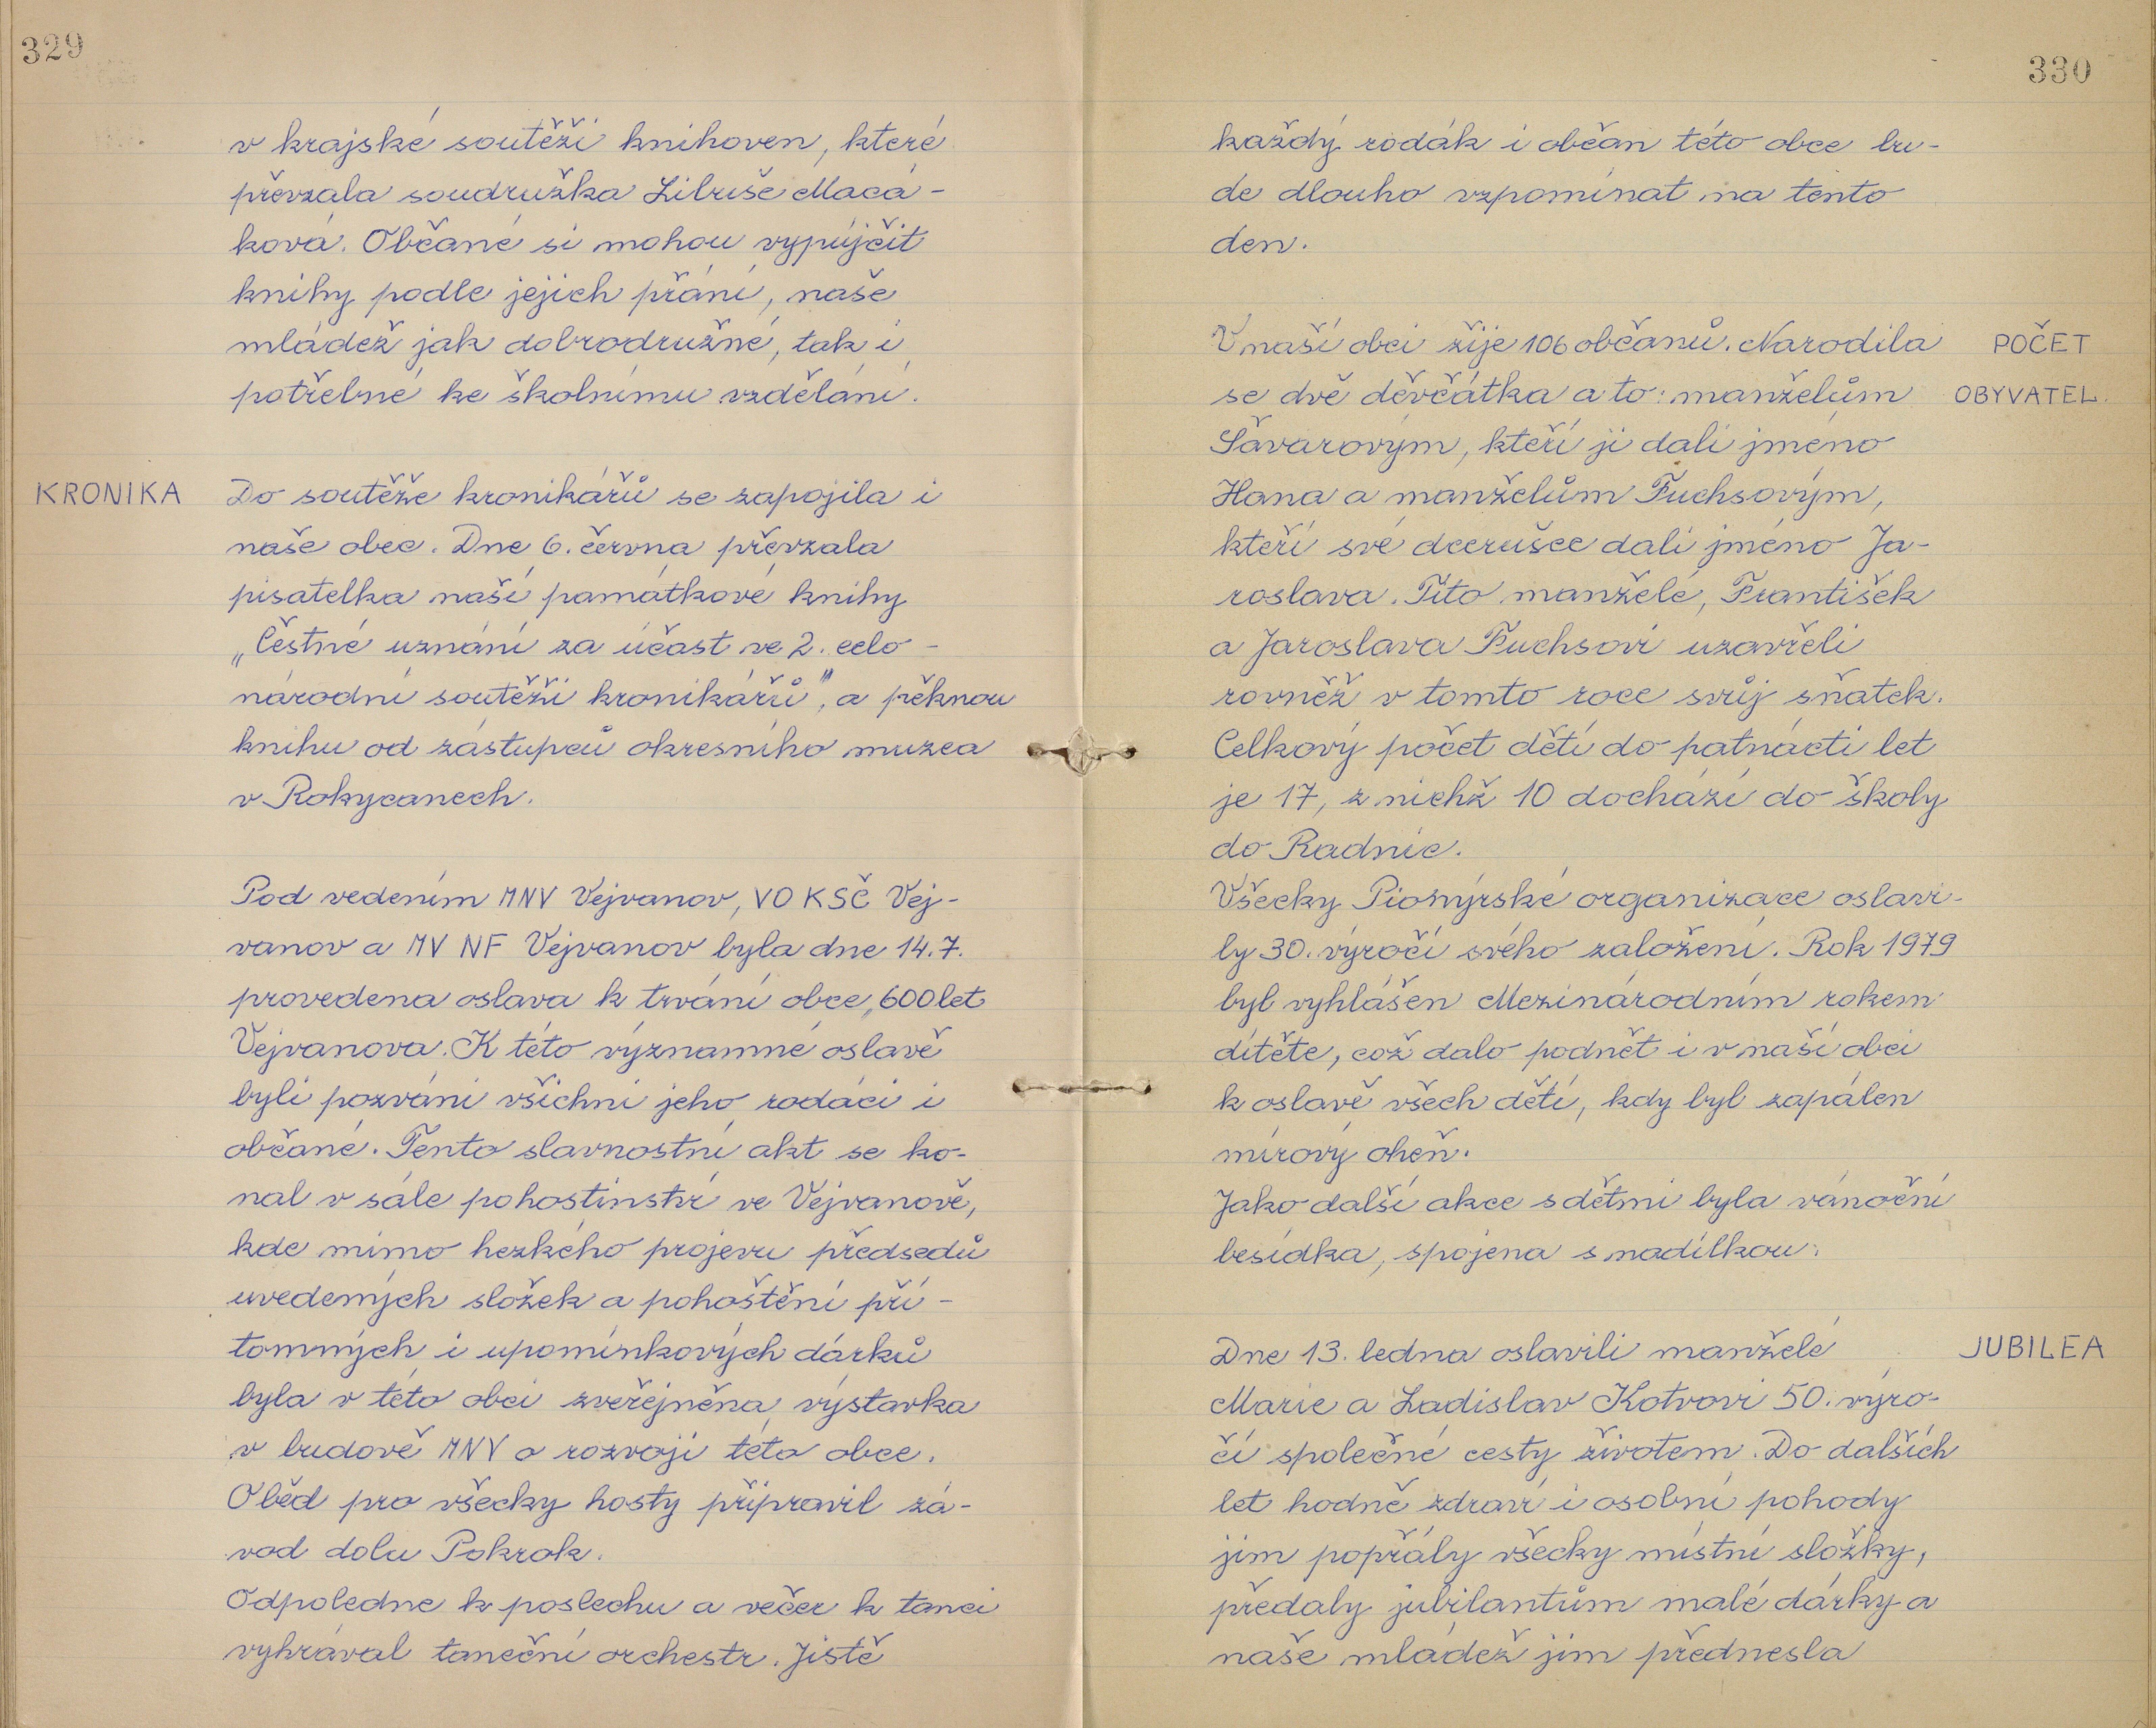 329
v krajské soutěži knihoven, které
převzala soudružka Libuše Macá-
ková. Občané si mohou vypůjčit
knihy podle jejich přání, naše
mládež jak dobrodružné, tak i
potřebné ke školnímu vzdělání.
KRONIKA
Do soutěže kronikářů se zapojila i
naše obec. Dne 6. června převzala
pisatelka naší památkové knihy
„Čestné uznání za účast ve 2. celo-
národní soutěži kronikářů", a pěknou
knihu od zástupců okresního muzea
v Rokycanech.
Pod vedením MNV Vejvanov, VO KSČ Vej-
vanov a MV NF Vejvanov byla dne 14.7.
provedena oslava k trvání obce „600 let
Vejvanova. K této významné oslavě
byli pozváni všichni jeho rodáci i
občané. Tento slavnostní akt se ko-
nal v sále pohostinství ve Vejvanově,
kde mimo hezkého projevu předsedů
uvedených složek a pohoštění pří-
tomných i upomínkových dárků
byla v této obci zveřejněna výstavka
v budově MNV o rozvoji této obce.
Oběd pro všecky hosty připravil zá-
vod dolu Pokrok.
Odpoledne k poslechu a večer k tanci
vyhrával taneční orchestr. Jistě
330
každý rodák i občan této obce bu-
de dlouho vzpomínat na tento
den.
POČET
OBYVATEL.
V naší obci žije 106 občanů. Narodila
se dvě děvčátka a to: manželům
Šavarovým, kteří ji dali jméno
Hana a manželům Fuchsovým,
kteří své dcerušce dali jméno Ja-
roslava. Tito manželé, František
a Jaroslava Fuchsovi uzavřeli
rovněž v tomto roce svůj sňatek.
Celkový počet dětí do patnácti let
je 17, z nichž 10 dochází do školy
do Radnic.
Všecky Pionýrské organizace oslavi-
ly 30. výročí svého založení. Rok 1979
byl vyhlášen Mezinárodním rokem
dítěte, což dalo podnět i v naší obci
k oslavě všech dětí, kdy byl zapálen
mírový oheň.
Jako další akce s dětmi byla vánoční
besídka, spojena s nadílkou.
JUBILEA
Dne 13. ledna oslavili manželé
Marie a Ladislav Kotvovi 50. výro-
čí společné cesty životem. Do dalších
let hodně zdraví i osobní pohody
jim popřály všecky místní složky,
předaly jubilantům malé dárky a
naše mládež jim přednesla